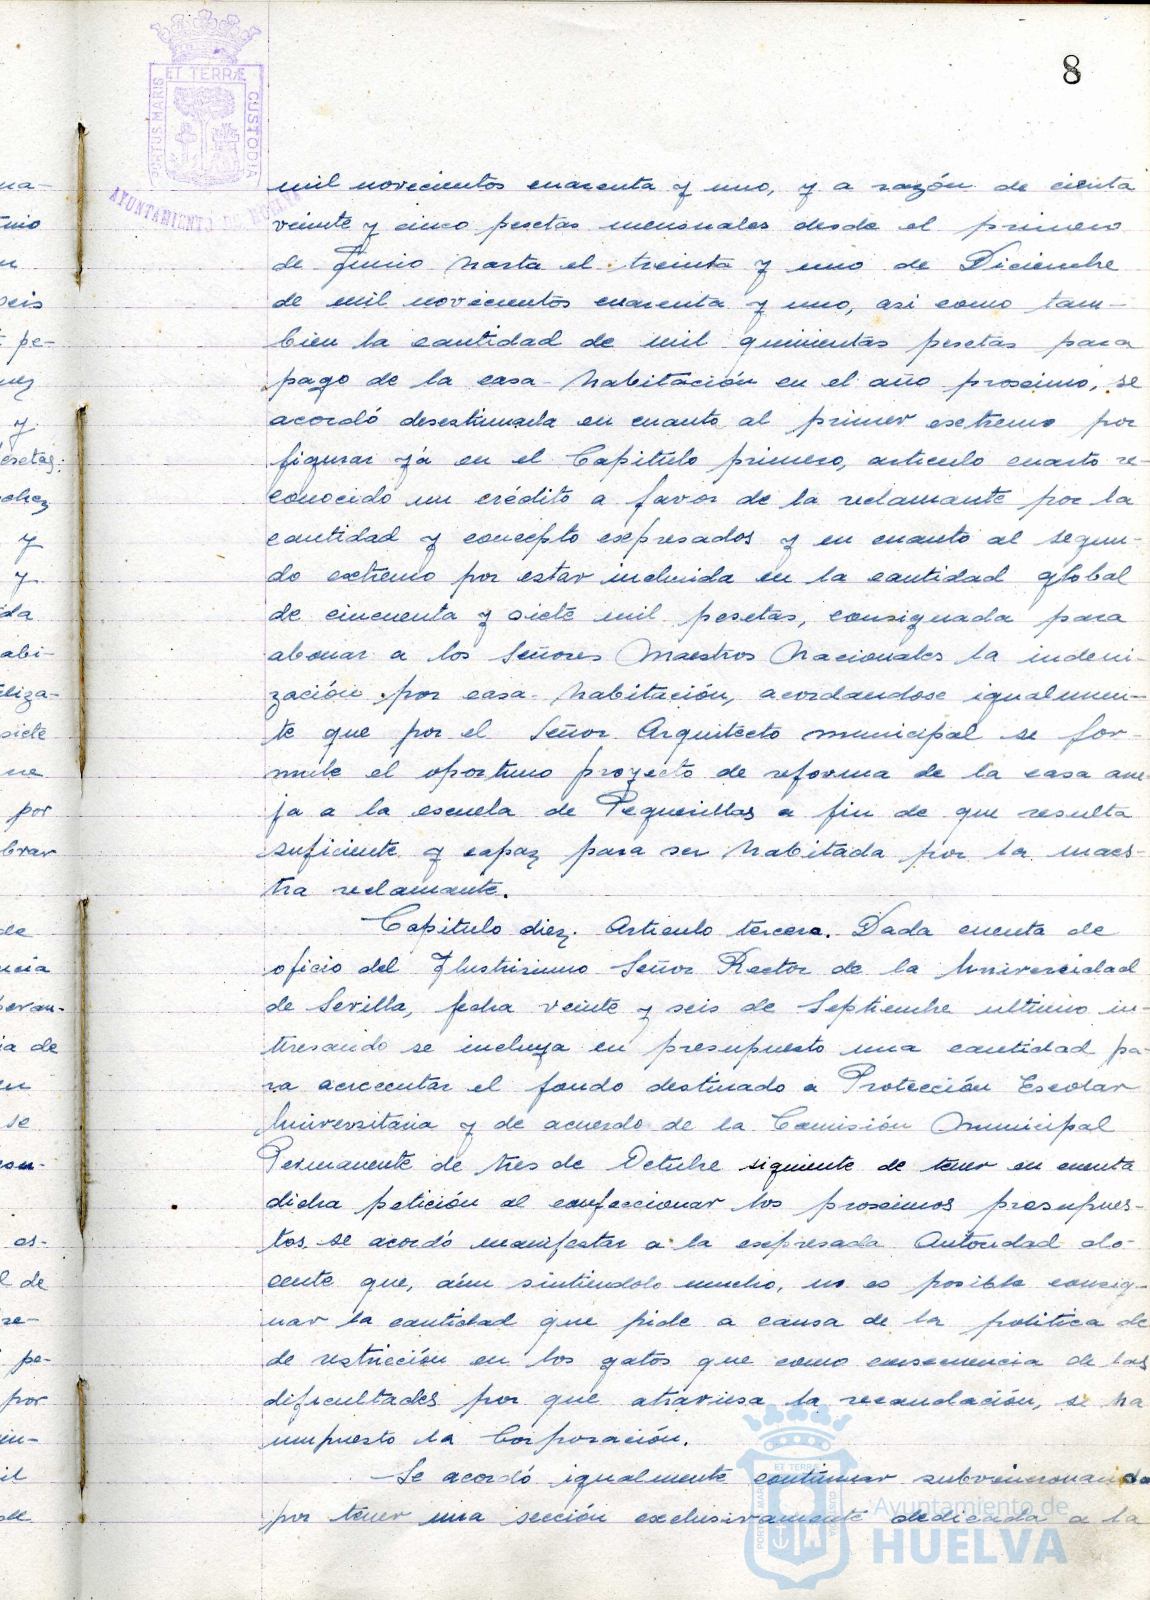 8
PORTUS MARIS ET TERRÆ CUSTODIA
AYUNTAMIENTO DE HUELVA
mil novecientos cuarenta y uno, y a razón de cienta
veinte y cinco pesetas mensuales desde el primero
de Junio hasta el treinta y uno de Diciembre
de mil novecientos cuarenta y uno, asi como tam-
bien la cantidad de mil quinientas pesetas para
pago de la casa-habitación en el año proximo, se
acordó desestimarla en cuanto al primer extremo por
figurar yá en el Capitulo primero, articulo cuarto re-
conocido un crédito a favor de la reclamante por la
cantidad y concepto expresados y en cuanto al segun-
do extremo por estar incluida en la cantidad global
de cincuenta y siete mil pesetas, consignada para
abonar a los Señores Maestros Nacionales la indemi-
zación por casa-habitación, acordandose igualmen-
te que por el Señor Arquitecto municipal se for-
mule el oportuno proyecto de reforma de la casa ane-
ja a la escuela de Pequerillas a fin de que resulta
suficiente y capaz para ser habitada por la maes-
tra reclamante.
Capitulo diez. Articulo tercero. Dada cuenta de
oficio del Ilustrisimo Señor Rector de la Universidad
de Sevilla, fecha veinte y seis de Septiembre ultimo in-
tresando se incluya en presupuesto una cantidad pa-
ra acrecentar el fondo destinado a Protección Escolar
Universitaria y de acuerdo de la Comisión Municipal
Permanente de tres de Octubre siguiente de tener en cuenta
dicha petición al confeccionar los proximos presupues-
tos se acordó manifestar a la expresada Autoridad do-
cente que, aún sintiendolo mucho, no es posible consig-
nar la cantidad que pide a causa de la politica de
de restricción en los gatos que como consecuencia de las
dificultades por que atraviesa la recaudación, se ha
impuesto la Corporación.
Se acordó igualmente continuar subvencionando
por tener una sección exclusivamente dedicada a la
Ayuntamiento de
HUELVA